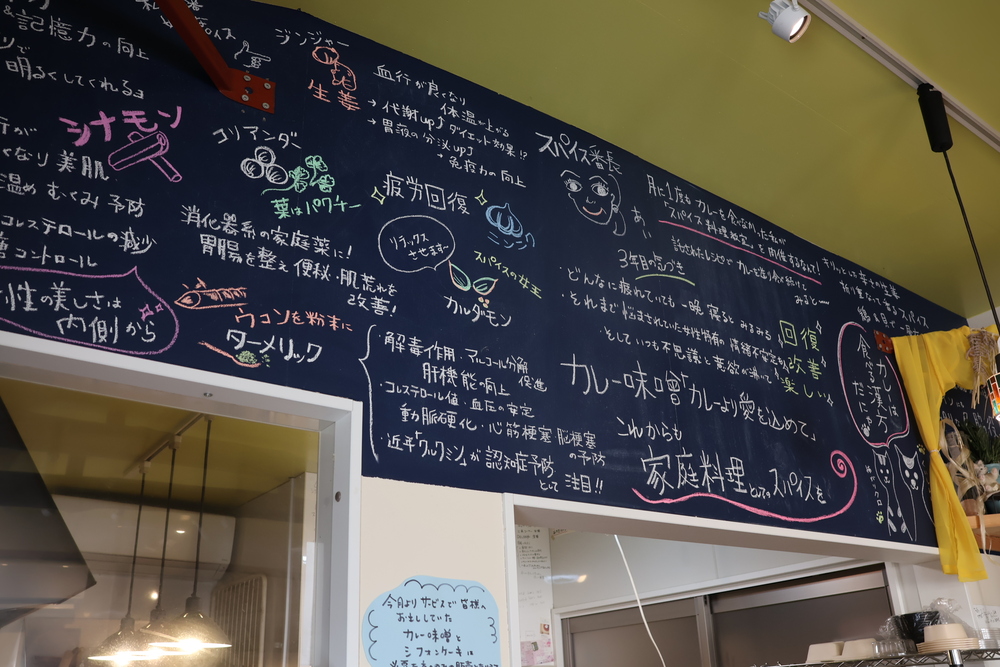 &記憶力の向上
明るくしてくれるよ
シナモン
美肌
温め むくみ 予防
コレステロールの減少
コントロール
性の美しさは
内側から
ジンジャー
生姜
血行が良くなり
体温が上がる
→代謝up♪ダイエット効果!?
→胃液の分泌up♪
→免疫力の向上
コリアンダー
葉はパクチー
消化器系の家庭薬に!
胃腸を整え 便秘・肌荒れを
改善!
疲労回復
ニンニク
リラックス
させます〜
スパイスの女王
カルダモン
ウコンを粉末に
ターメリック
・解毒作用・アルコール分解
肝機能の向上 促進
・コレステロール値・血圧の安定
動脈硬化・心筋梗塞 脳梗塞
の予防
・近年「クルクミン」が 認知症予防
として 注目!!
スパイス番長
月に1度も カレーを食べなかった私が
「スパイス料理教室」を開催するなんて!
カレーを造り食べ続けて
みると〜
3年目の気づき
・どんなに疲れていても 一晩寝ると みるみる 回復
・それまで悩まされていた女性特有の 情緒不安定も 改善
そして いつも不思議と 楽しい
カレー味噌「カレーより愛を込めて」
これからも
家庭料理としてのスパイスを
カレーは
食べる漢方
だった!
今月より サービスで 皆様へ
お出ししていた
カレー味噌と
シフォンケーキに